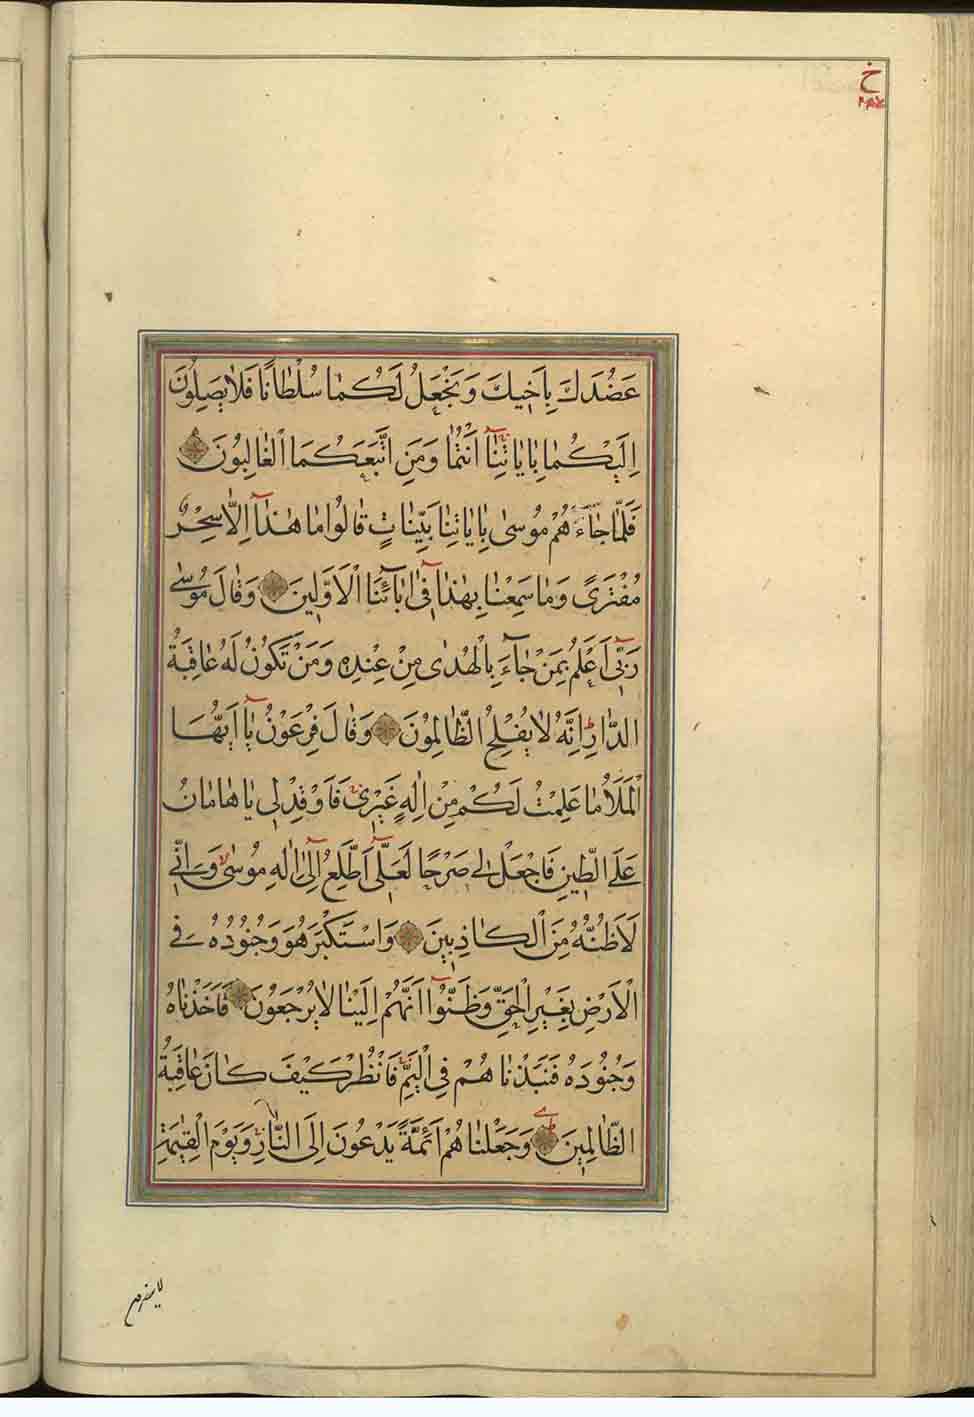 خ
عَضُدَكَ بِاَخيكَ وَنَجْعَلُ لَكُمٰا سُلْطٰانًا فَلاٰ يَصِلُونَ
اِلَيْكُمٰا بِاٰيٰاتِنٰآ اَنْتُمٰا وَمَنِ اتَّبَعَكُمَا الْغٰالِبُونَ
فَلَمّٰا جٰآءَهُمْ مُوسىٰ بِاٰيٰاتِنٰا بَيِّنٰاتٍ قٰالُوا مٰا هٰذٰآ اِلاّٰ سِحْرٌ
مُفْتَرًى وَمٰا سَمِعْنٰا بِهٰذٰا فىٓ اٰبٰآئِنَا الْاَوَّلينَ وَقٰالَ مُوسىٰ
رَبّىٓ اَعْلَمُ بِمَنْ جٰآءَ بِالْهُدٰى مِنْ عِنْدِه وَمَنْ تَكُونُ لَهُ عٰاقِبَةُ
الدّٰارِ اِنَّهُ لاٰ يُفْلِحُ الظّٰالِمُونَ وَقٰالَ فِرْعَوْنُ يٰآ اَيُّهَا
الْمَلَاُ مٰا عَلِمْتُ لَكُمْ مِنْ اِلٰهٍ غَيْرى فَاَوْقِدْ لى يٰا هٰامٰانُ
عَلَى الطّينِ فَاجْعَلْ لى صَرْحًا لَعَلّىٓ اَطَّلِعُ اِلىٰٓ اِلٰهِ مُوسىٰ وَاِنّى
لَاَظُنُّهُ مِنَ الْكٰاذِبينَ وَاسْتَكْبَرَ هُوَ وَجُنُودُهُ فى
الْاَرْضِ بِغَيْرِ الْحَقِّ وَظَنُّوٓا اَنَّهُمْ اِلَيْنٰا لاٰ يُرْجَعُونَ فَاَخَذْنٰاهُ
وَجُنُودَهُ فَنَبَذْنٰاهُمْ فِى الْيَمِّ فَانْظُرْ كَيْفَ كٰانَ عٰاقِبَةُ
الظّٰالِمينَ وَجَعَلْنٰاهُمْ اَئِمَّةً يَدْعُونَ اِلَى النّٰارِ وَيَوْمَ الْقِيٰمَةِ